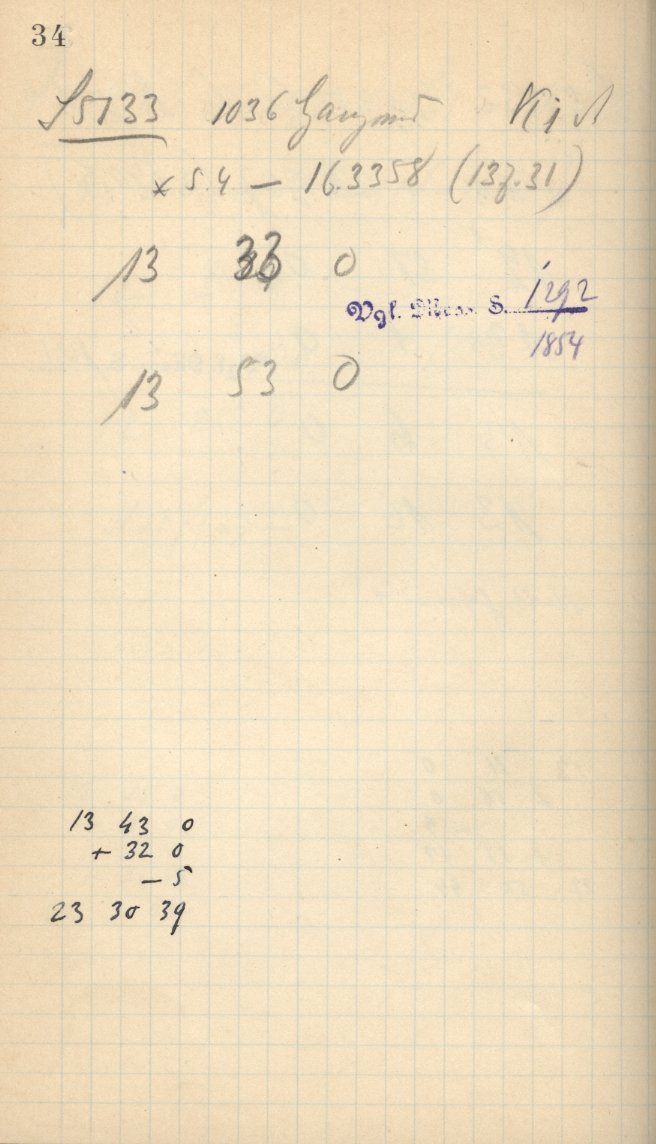 34
S5133 1036 Ganymed Ki A
× 5.4 — 16.3358 (137.31)
13 33 0
Vgl. Mess. S. 1292
1854
13 53 0
13 43 0
+ 32 0
— 5
23 30 39